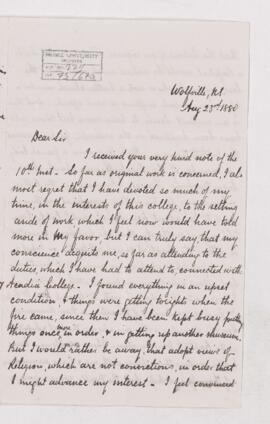 Wolfville, N.S.
Aug 23rd 1880
Dear Sir
I received your very kind note of the
10th inst. So far as original work is concerned, I al-
most regret that I have devoted so much of my
time, in the interests of this college, to the setting
aside of work which I feel now would have told
more in my favor, but I can truly say that my
conscience acquits me, so far as attending to the
duties, which I have had to attend to, connected with
Acadia College. I found everything in an upset
condition, & things were getting to rights when the
fire came, since then I have been kept busy putting
things once more in order, & in getting up another museum.
But I would rather be away, that adopt views of
Religion, which are not convictions, in order that
I might advance my interest. I feel convinced